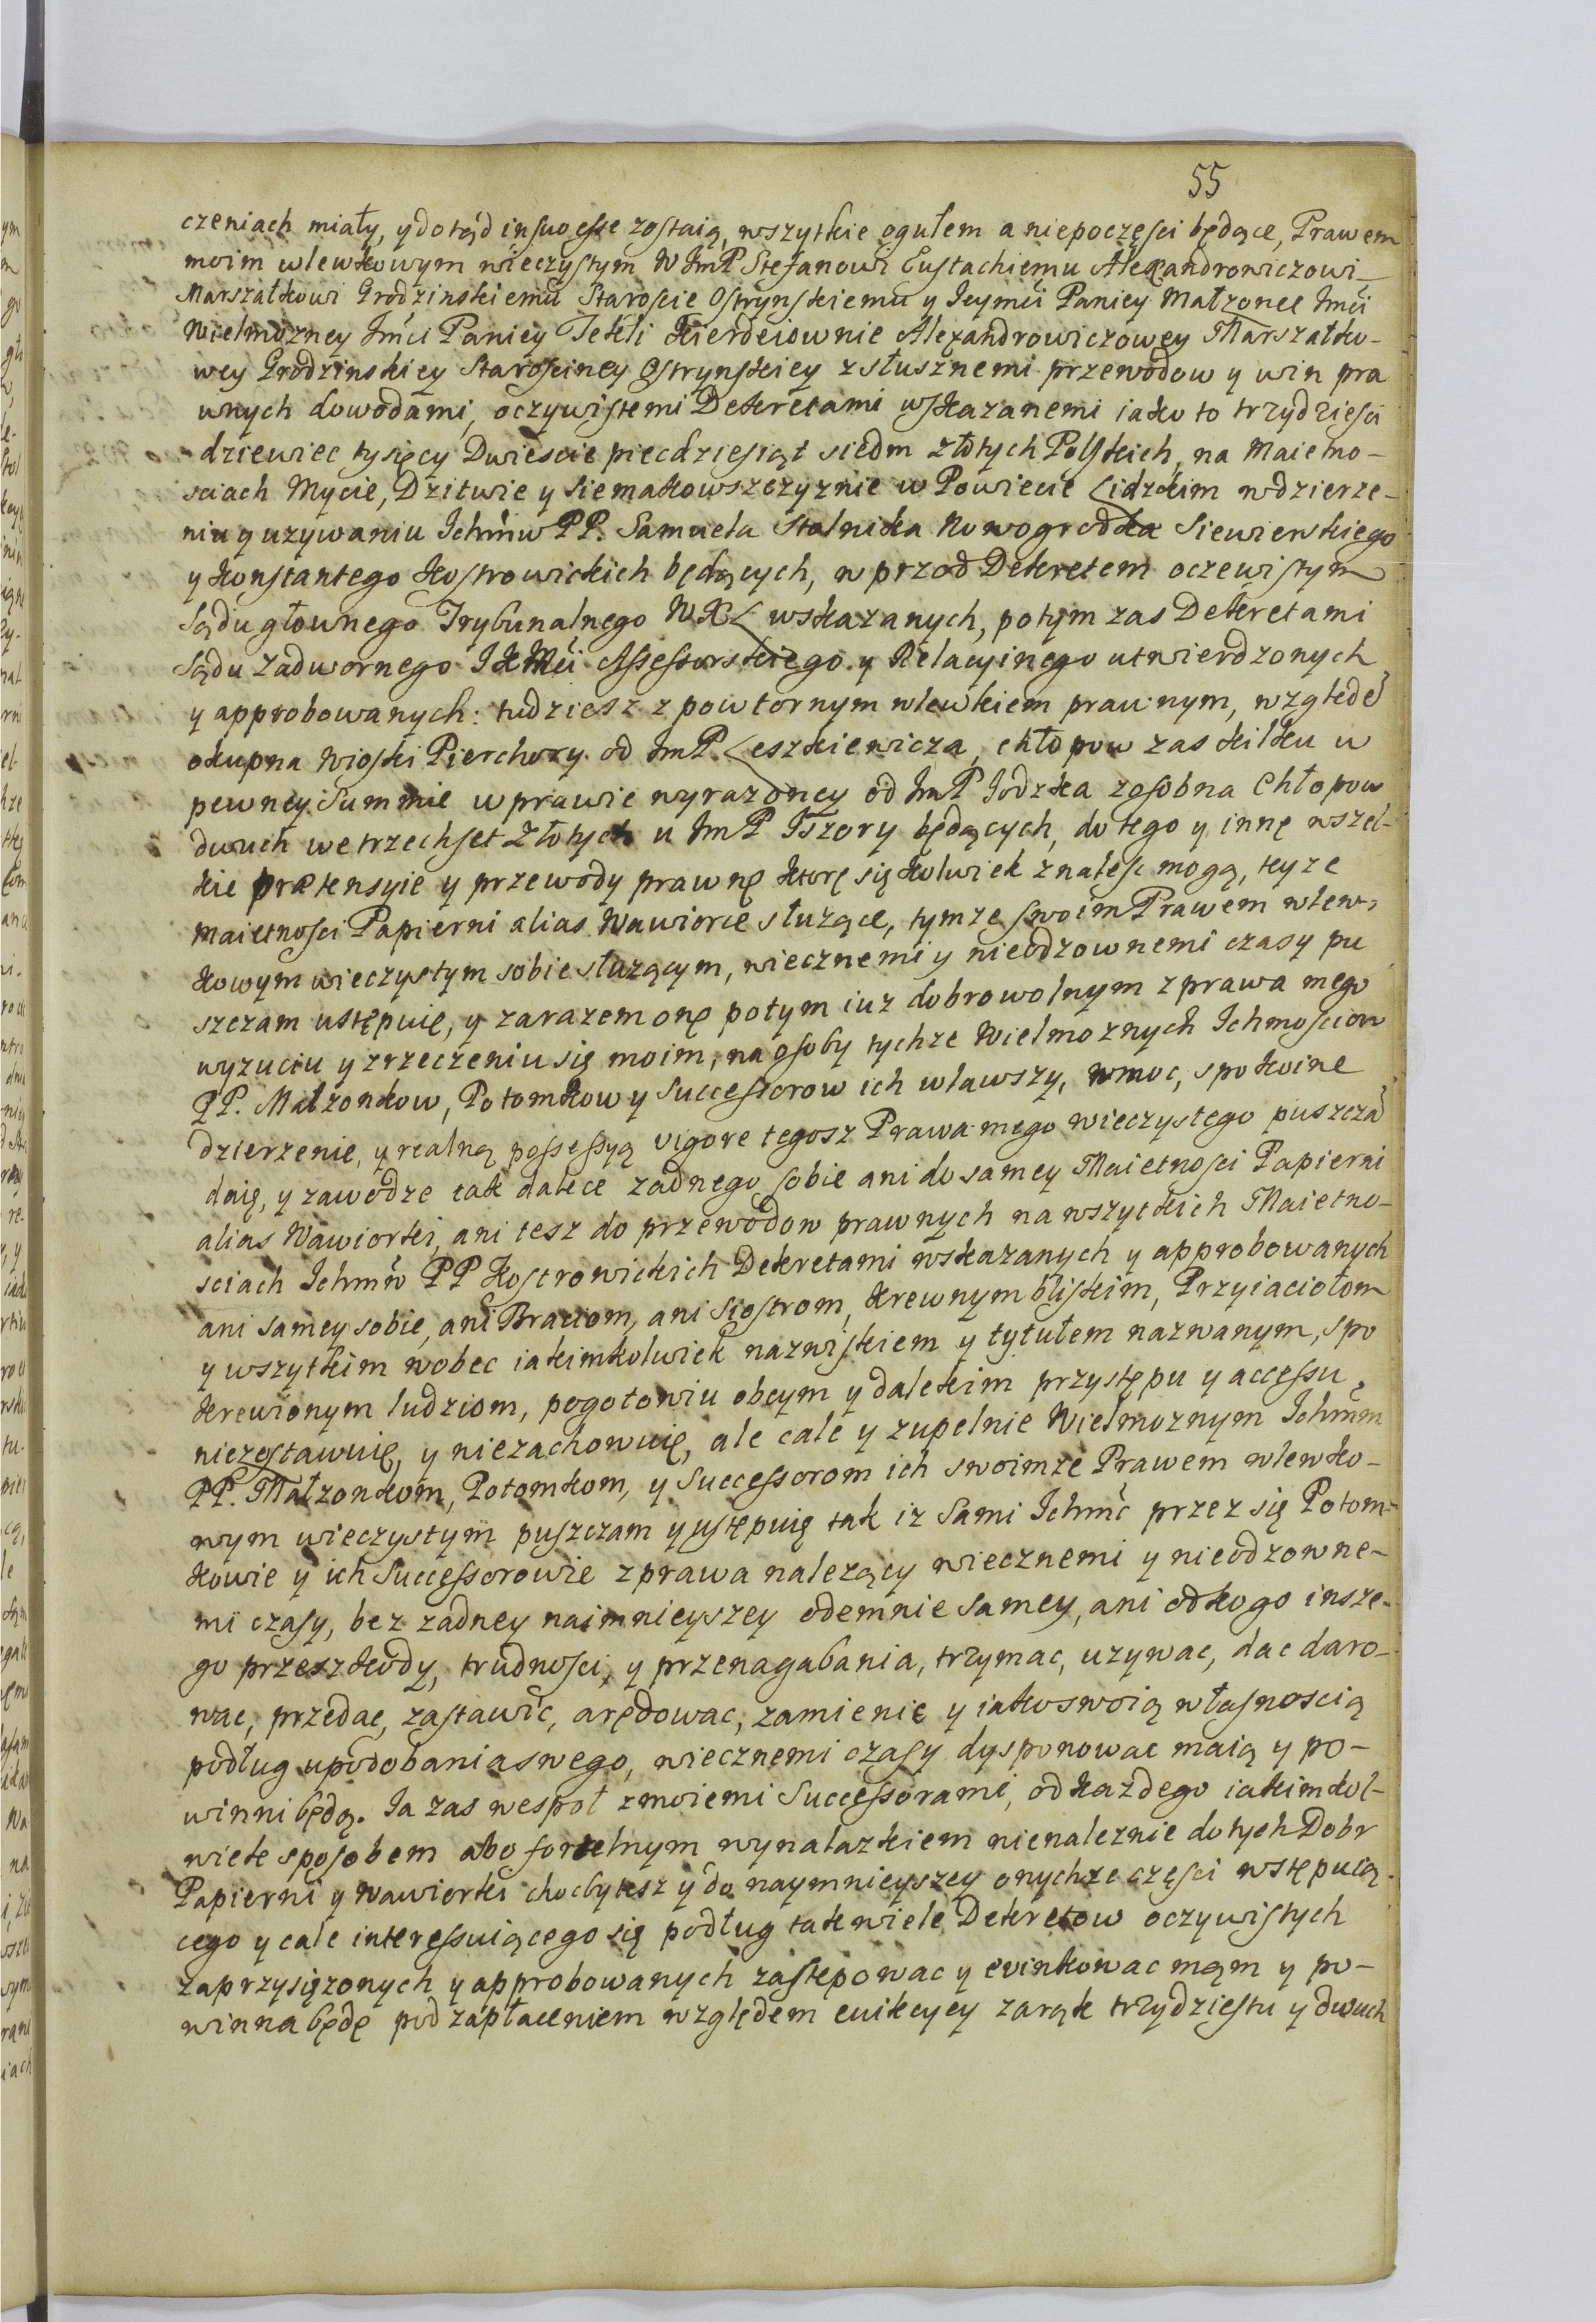 55
czeniach miały, y dotąd in suo esse zostaią, wszytkie ogułem a niepoczęsci będące, Prawem
moim wlewkowym wieczystym W JmP Stefanowi Eustachiemu Alexandrowiczowi
Marszałkowi Grodzinskiemu Staroscie Ostrynskiemu y Jeymći Paniey Małzonce Jmći
Wielmozney Jmći Paniey Tekli Kierdeiownie Alexandrowiczowey Marszałko-
wey Grodzinskiey Starosciney Ostrynskiey z słusznemi przewodow y win pra
wnych dowodami, oczywistemi Dekretami wskazanemi iako to trzydziesci
dziewiec tysięcy Dwiescie piecdziesiąt siedm złotych Polskich, na Maietno-
sciach Mycie, Dzitwie y Siemakowszczyznie w Powiecie Lidzkim w dzierze-
niu y uzywaniu Ichmw PP. Samuela Stolnika Nowogrodka Siewierskiego
y Konstantego Kostrowickich będących, w przod Dekretem oczewistym
Sądu głownego Trybunalnego WXL wskazanych, potym zas Dekretami
Sądu Zadwornego JKMći Assessorskiego y Relacyinego utwierdzonych
y approbowanych: tudziesz z powtornym wlewkiem prawnym, względe
okupna Wioski Pierchozy od JmP. Leszkiewicza, chłopow zas kilku w
pewney Summie w prawie wyrazoney od JmP Jodzka zosobna Chłopow
dwuch we trzechset Złotych u JmP Iszory będących, do tego y innę wszel-
kie prætensyie y przewody prawnę ktorę się kolwiek znalesc mogą, teyze
maietnosci Papierni alias Wawiorce słuzące, tymze swoim Prawem wlew-
kowym wieczystym sobie słuzącym, wiecznemi y nieodzownemi czasy pu
szczam ustępuię, y zarazem onę potym iuz dobrowolnym z prawa mego
wyzuciu y zrzeczeniu się moim, na osoby tychze Wielmoznych Ichmosciow
PP. Malzonkow, Potomkow y Successorow ich wlawszy, w moc, spokoine
dzierzenie, y realną possessyą vigore tegosz Prawa mego wieczystego puszcza
daię, y zawodze tak dalece zadnego sobie ani do samey Maietnosci Papierni
alias Wawiorki, ani tesz do przewodow prawnych na wszytkich Maietno-
sciach Ichmw PP Kostrowickich Dekretami wskazanych y approbowanych
ani samey sobie, ani Braciom, ani Siostrom, krewnym bliskim, Przyiaciołom
y wszytkim wobec iakimkolwiek nazwiskiem y tytułem nazwanym, spo
krewionym ludziom, pogotowiu obcym y dalekim przystępu y accessu
niezostawuię, y niezachowuię, ale cale y zupełnie Wielmoznym Ichmm
PP. Małzonkom, Potomkom, y Successorom ich swoimze Prawem wlewko-
wym wieczystym puszczam y ustępuię tak iz Sami Ichmc przez się Potom-
kowie y ich Successorowie z prawa nalezący wiecznemi y nieodzowne-
mi czasy, bez zadney naimnieyszey odemnie samey, ani od kogo insze-
go przeszkody, trudnosci, y przenagabania, trzymac, uzywac, dac daro-
wac, przedac, zastawic, arędowac, zamienic y iako swoią własnoscią
podług upodobania swego, wiecznemi czasy dysponowac maią y po-
winni będą. Ja zas wespoł z moiemi Successorami, od kazdego iakimkol-
wiek sposobem abo fortelnym wynalazkiem nienaleznie do tych Dobr
Papierni y Wawiorki chocbytesz y do naymnieyszey onychze części wstępuią.
cego y cale interessuiącego się podług tak wiele Dekretow oczywistych
zaprzysięzonych y approbowanych zastepowac y evinkowac mąm y po-
winna będę pod zapłaceniem względem ewikcyey zarąk trzydziestu y dwuch